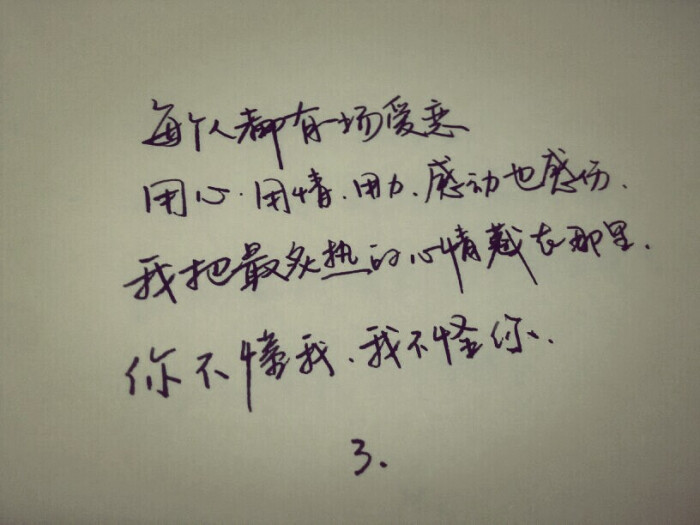 每个人都有一场爱恋
用心.用情.用力.感动也感伤.
我把最炙热的心情藏在那里.
你不懂我.我不怪你.
3.